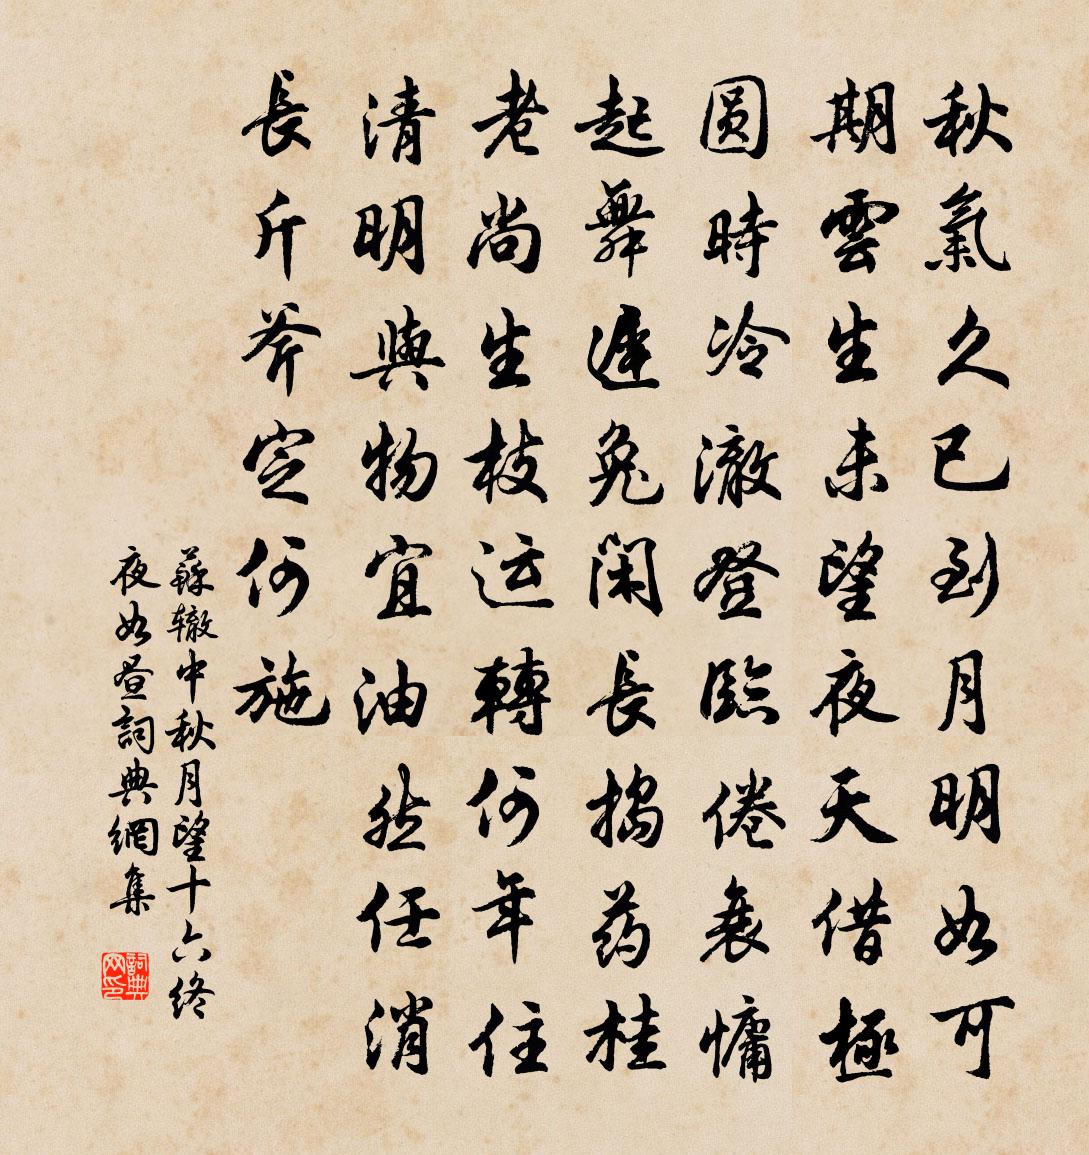 秋氣久已到月明如可
期雲生未望夜天借極
圓時冷澈登臨倦衰慵
起舞遲兔閑長搗药桂
老尚生枝运轉何年住
清明與物宜油然任消
長斤斧定何施
蘇辙中秋月望十六终
夜如昼詞典網集
詞典网印